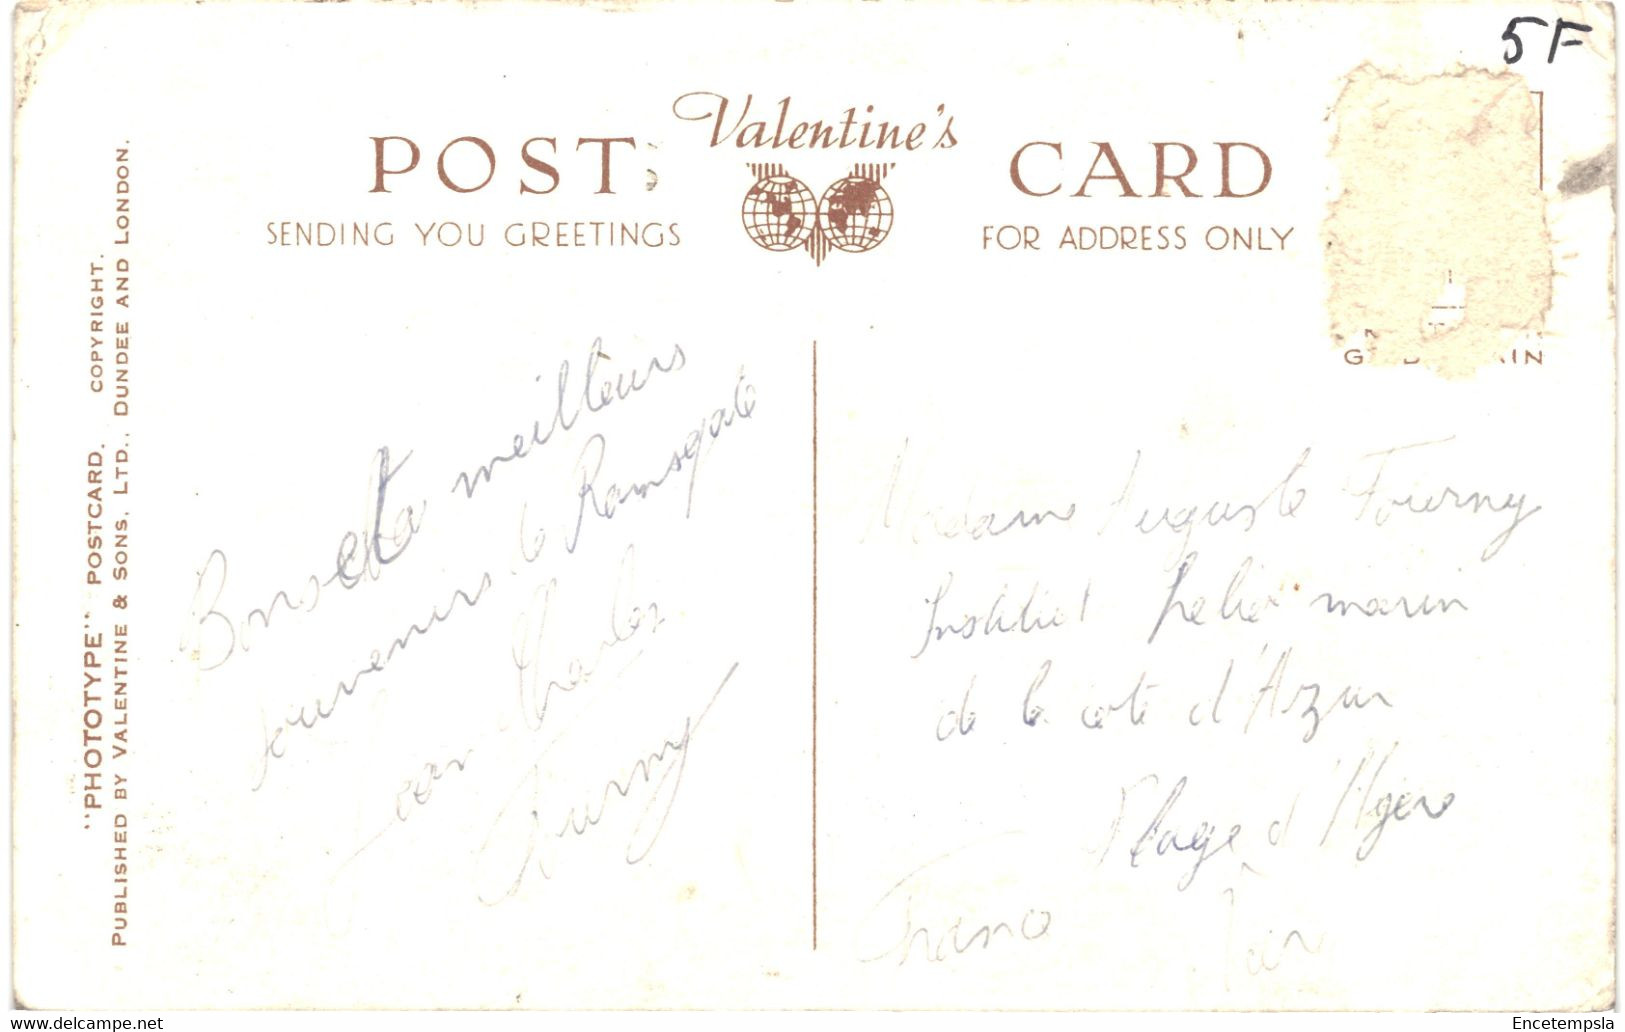 5F
Valentine's
POST CARD
SENDING YOU GREETINGS
FOR ADDRESS ONLY
"PHOTOTYPE" POSTCARD. COPYRIGHT.
PUBLISHED BY VALENTINE & SONS, LTD., DUNDEE AND LONDON.
Bons et meilleurs
souvenirs de Ramsgate
Jean Charles
Fourny
Madame Auguste Fourny
Institut helio marin
de la cote d'Azur
Plage d'Hyères
France Var
Encetempsla